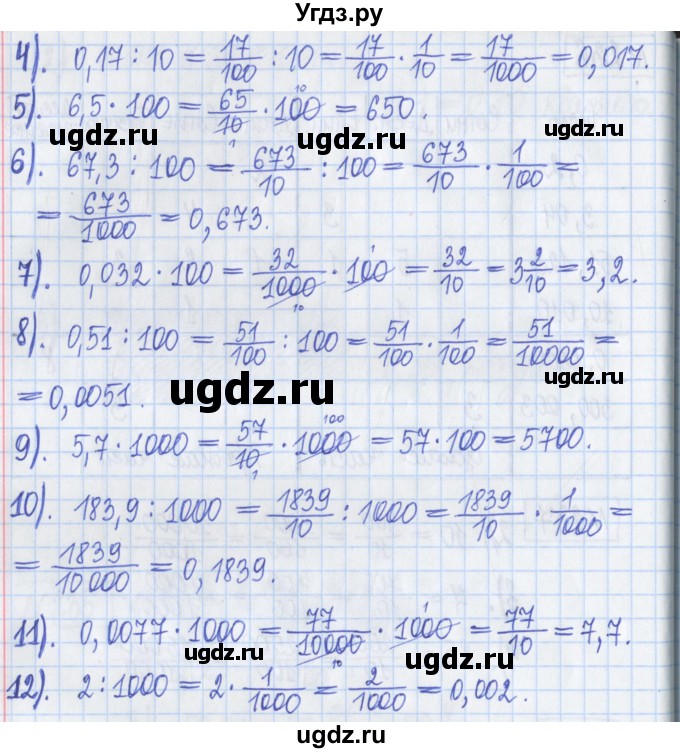 Угдз.ру
4). 0,17 : 10 = 17/100 : 10 = 17/100 · 1/10 = 17/1000 = 0,017.
5). 6,5 · 100 = 65/10 · 100 = 650.
ugdz.ru ugdz.ru
6). 67,3 : 100 = 673/10 : 100 = 673/10 · 1/100 =
= 673/1000 = 0,673.
7). 0,032 · 100 = 32/1000 · 100 = 32/10 = 3 2/10 = 3,2.
8). 0,51 : 100 = 51/100 : 100 = 51/100 · 1/100 = 51/10000 =
ugdz.ru
= 0,0051.
ugdz.ru
9). 5,7 · 1000 = 57/10 · 1000 = 57 · 100 = 5700.
10). 183,9 : 1000 = 1839/10 : 1000 = 1839/10 · 1/1000 =
= 1839/10 000 = 0,1839.
11). 0,0077 · 1000 = 77/10000 · 1000 = 77/10 = 7,7.
ugdz.ru ugdz.ru
12). 2 : 1000 = 2 · 1/1000 = 2/1000 = 0,002.